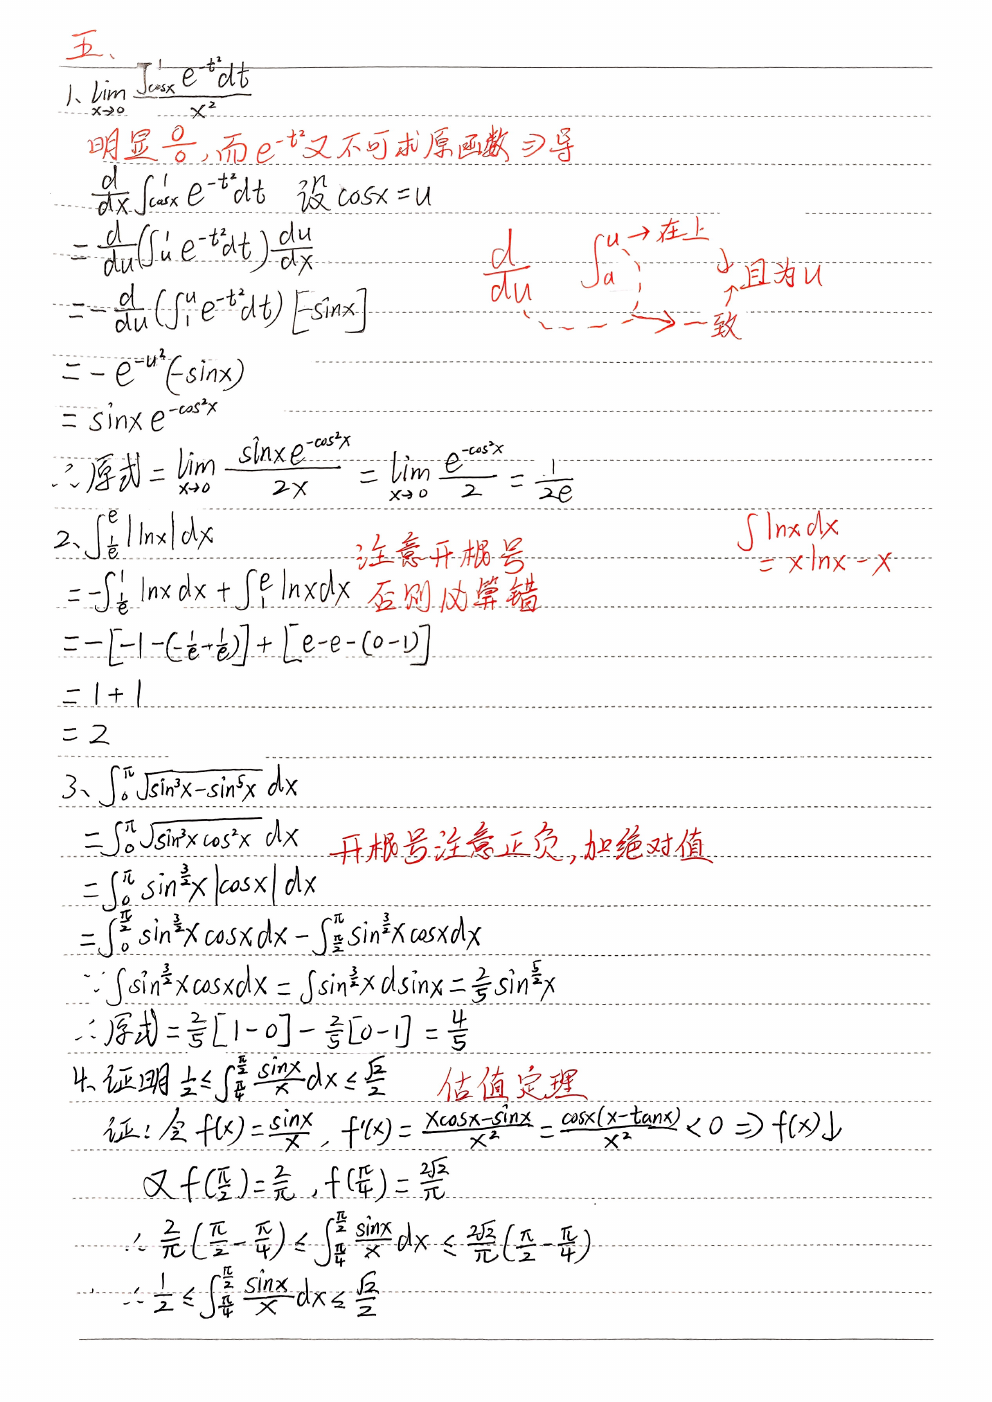 五、
1、lim_{x→0} ∫_{cosx}^{1} e^{-t²}dt / x²
明显 0/0,而e^{-t²}又不可求原函数⇒导
d/dx ∫_{cosx}^{1} e^{-t²}dt 设cosx=u
= d/du(∫_{u}^{1} e^{-t²}dt) du/dx
d/du ∫_{a}^{u} →在上 且为u
= -d/du(∫_{1}^{u} e^{-t²}dt)[-sinx]
→一致
= -e^{-u²}(-sinx)
= sinx e^{-cos²x}
∴原式 = lim_{x→0} sinxe^{-cos²x}/2x = lim_{x→0} e^{-cos²x}/2 = 1/2e
2、∫_{1/e}^{e} |lnx|dx
∫lnxdx
注意开根号
= xlnx-x
= -∫_{1/e}^{1} lnxdx + ∫_{1}^{e} lnxdx 否则必算错
= -[-1-(-1/e+1/e)] + [e-e-(0-1)]
= 1+1
= 2
3、∫_{0}^{π} √(sin³x-sin⁵x) dx
= ∫_{0}^{π} √(sin³xcos²x) dx 开根号注意正负,加绝对值
= ∫_{0}^{π} sin^{3/2}x|cosx|dx
= ∫_{0}^{π/2} sin^{3/2}xcosxdx - ∫_{π/2}^{π} sin^{3/2}xcosxdx
∵∫sin^{3/2}xcosxdx = ∫sin^{3/2}xdsinx = 2/5 sin^{5/2}x
∴原式 = 2/5[1-0] - 2/5[0-1] = 4/5
4、证明 1/2 ≤ ∫_{π/4}^{π/2} sinx/x dx ≤ √2/2 估值定理
证:令f(x) = sinx/x, f'(x) = xcosx-sinx/x² = cosx(x-tanx)/x² < 0 ⇒ f(x)↓
又f(π/2) = 2/π, f(π/4) = 2√2/π
∴ 2/π(π/2-π/4) ≤ ∫_{π/4}^{π/2} sinx/x dx ≤ 2√2/π(π/2-π/4)
∴ 1/2 ≤ ∫_{π/4}^{π/2} sinx/x dx ≤ √2/2